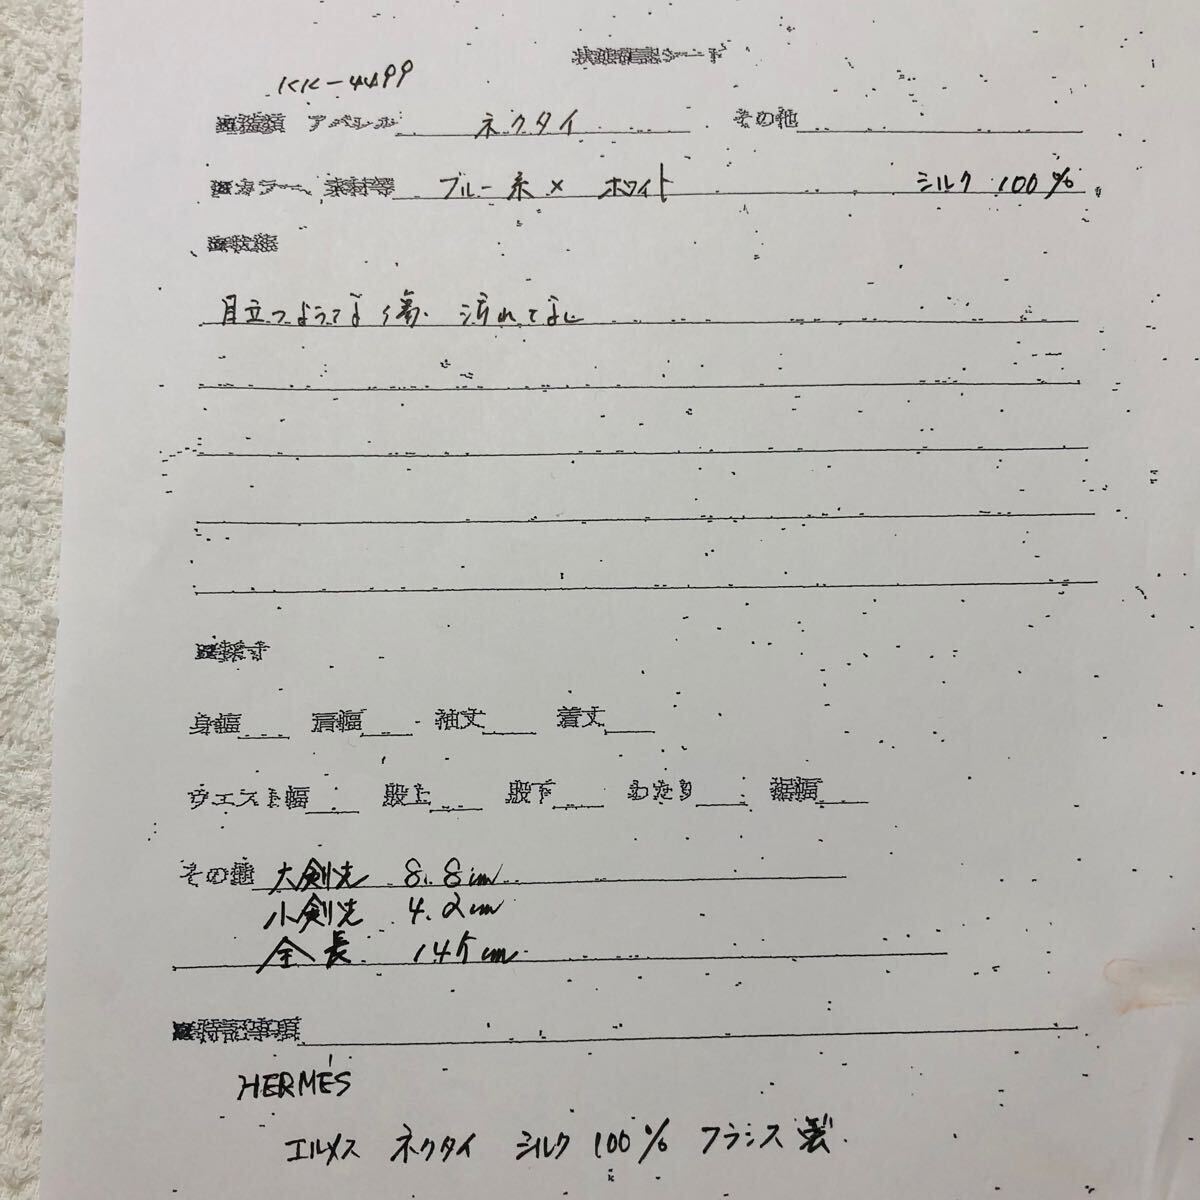 状態確認シート
KK-4499
■種類 アパレル ネクタイ その他
■カラー、素材等 ブルー系 × ホワイト シルク 100%
■状態
目立つような傷. 汚れてなし
■採寸
身幅 肩幅 袖丈 着丈
ウエスト幅 股上 股下 わたり 裾幅
その他 大剣先 8.8cm
小剣先 4.2cm
全長 145cm
■特記事項
HERMÉS
エルメス ネクタイ シルク 100% フランス製.